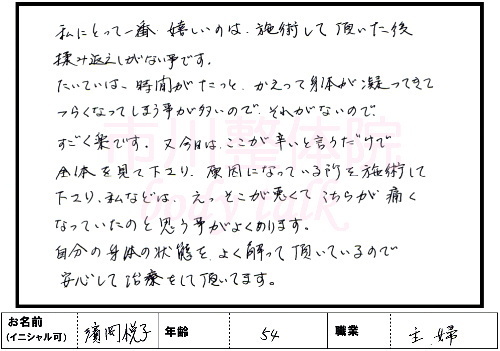 私にとって一番嬉しいのは、施術して頂いた後
揉み返えしがない事です。
たいていは、時間がたっと、かえって身体が凝ってきて
つらくなってしまう事が多いので、それがないので、
すごく楽です。又今日は、ここが辛いと言うだけで
全体を見て下さり、原因になっている所を施術して
下さり、私などは、えっそこが悪くてこちらが痛く
なっていたのと思う事がよくあります。
自分の身体の状態を、よく解って頂いているので
安心して治療をして頂いてます。
市川整体院
body talk
お名前
(イニシャル可)
濱岡悦子
年齢
54
職業
主婦